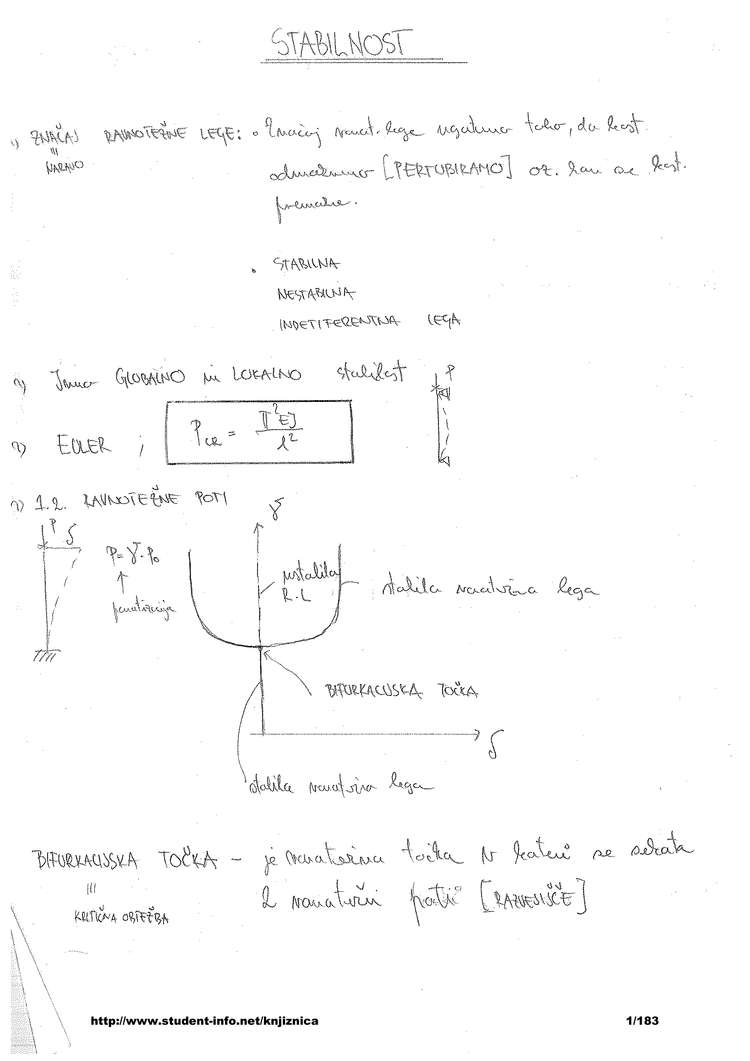 STABILNOST
1) ZNAČAJ RAVNOTEŽNE LEGE: • Značaj ravnot. lege ugotovimo tako, da konst.
III
NARAVO
odmaknemo [PERTUBIRAMO] oz. kam se konst.
premakne.
• STABILNA
NESTABILNA
INDETIFERENTNA LEGA
2) Imamo GLOBALNO in LOKALNO stabilnost
P
2) EULER ; Pcr = π²EJ / l²
2) 1.2. RAVNOTEŽNE POTI
γ
P δ
P = γ · P₀
nestabilna
R.L
stabilna ravnotežna lega
BIFURKACIJSKA TOČKA
δ
stabilna ravnotežna lega
BIFURKACIJSKA TOČKA – je ravnotežna točka v kateri se sekata
III
2 ravnotežni poti [RAZVEJIŠČE]
KRITIČNA OBTEŽBA
http://www.student-info.net/knjiznica
1/183